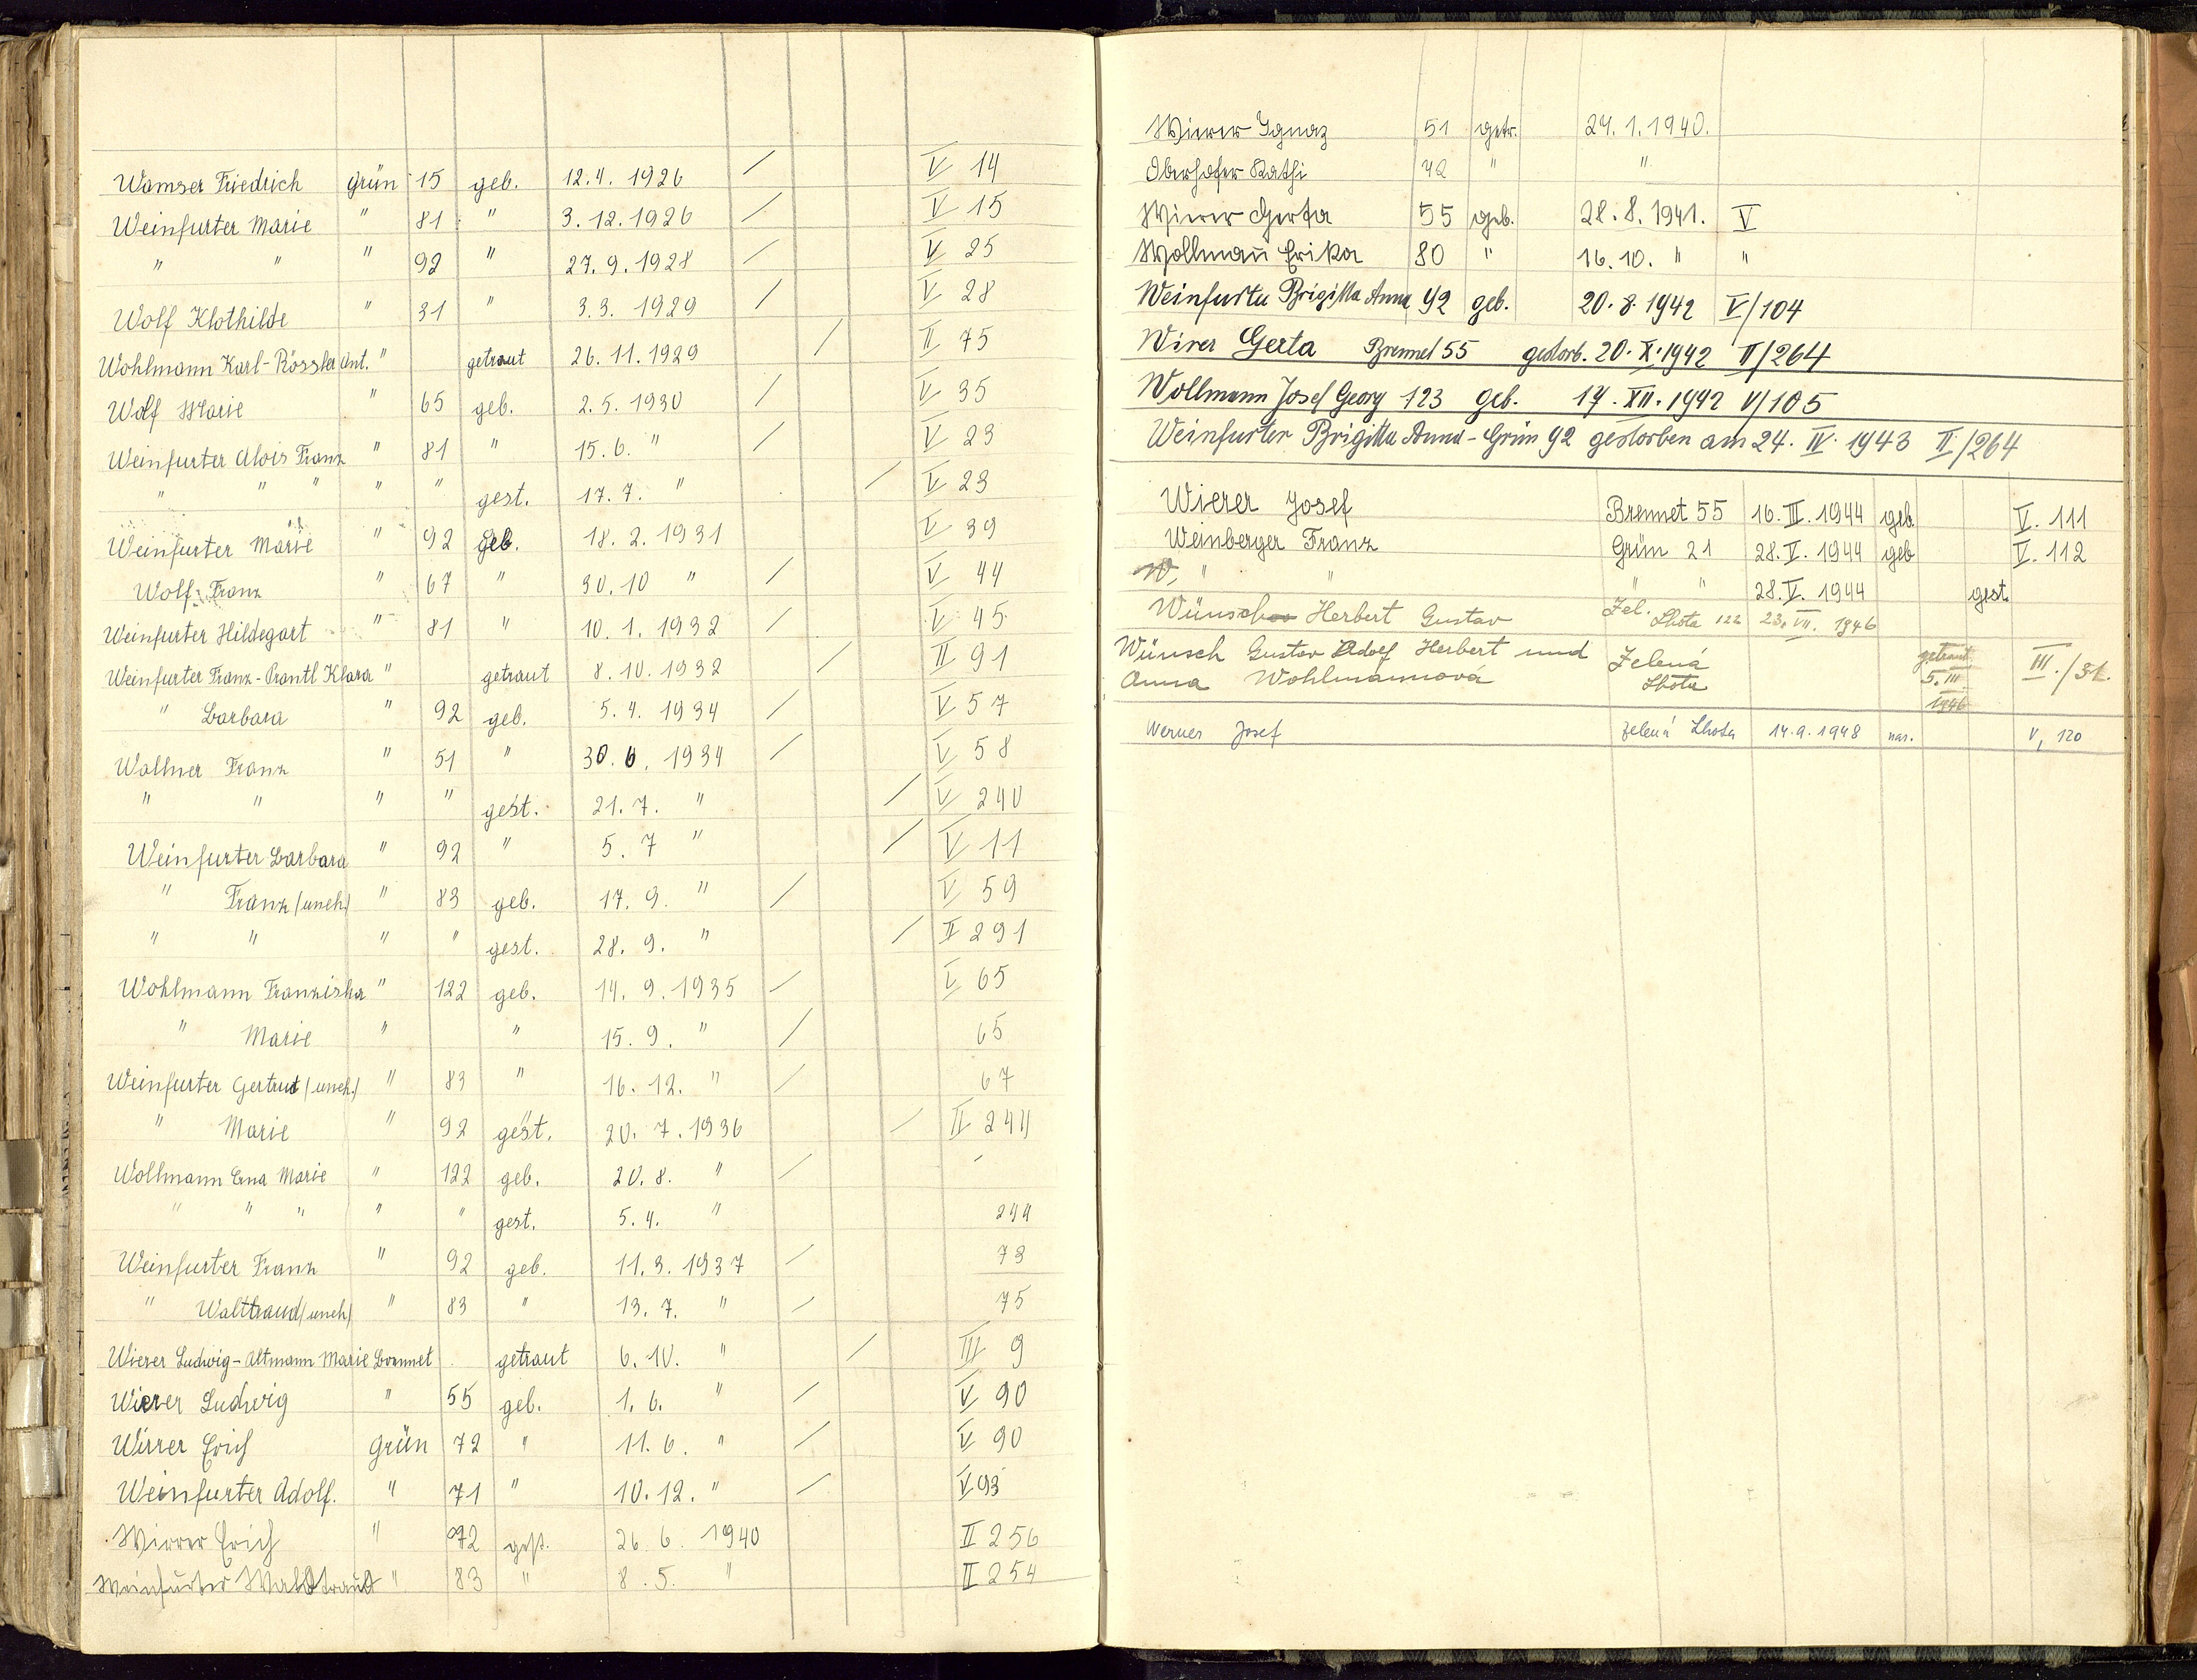 Wamser Friedrich grün 15 geb. 12.4. 1926 / V 14
Weinfurter Marie " 81 " 3.12.1926 / V 15
" " " 92 " 27.9.1928 / V 25
Wolf Klothilde " 31 " 3.3. 1929 / V 28
Wohlmann Karl-Rössler Ant. " getraut 26.11.1929 / II 75
Wolf Marie " 65 geb. 2.5.1930 / V 35
Weinfurter Alois Franz " 81 " 15.6. " / V 23
" " " " " gest. 17.7. " / V 23
Weinfurter Marie " 92 geb. 18.2.1931 V 39
Wolf Franz " 67 " 30.10 " / V 44
Weinfurter Hildegart " 81 " 10.1.1932 / V 45
Weinfurter Franz-Prantl Klara " getraut 8.10.1932 / II 91
" Barbara " 92 geb. 5.4.1934 / V 57
Wallner Franz " 51 " 30.6.1934 / V 58
" " " " gest. 21.7. " / V 240
Weinfurter Barbara " 92 " 5.7 " / V 11
" Franz (uneh.) " 83 geb. 17.9. " / V 59
" " " " gest. 28.9. " / II 291
Wohlmann Franziska " 122 geb. 14.9.1935 / V 65
" Marie " " 15.9. " / 65
Weinfurter Gertrud (uneh.) " 83 " 16.12. " / 67
" Marie " 92 gest. 20.7.1936 / II 244
Wollmann Erna Marie " 122 geb. 20.8. " /
" " " " " gest. 5.4. " 244
Weinfurter Franz " 92 geb. 11.3.1937 / 73
" Walttraud (uneh) " 83 " 13.7. " / 75
Wierer Ludwig-Altmann Marie Brennet getraut 6.10. " / III 9
Wierer Ludwig " 55 geb. 1.6. " / V 90
Wirrer Erich Grün 72 " 11.6. " / V 90
Weinfurter Adolf. " 71 " 10.12. " / V 93
Wirrer Erich " 72 gest. 26.6. 1940 II 256
Weinfurter Waldtraud " 83 " 8.5. " II 254
Wierer Ignaz 51 getr. 24.1.1940.
Oberhofer Kathi 42 " "
Wierer Gerta 55 geb. 28.8.1941. V
Wollmann Erika 80 " 16.10. " "
Weinfurter Brigitta Anna 92 geb. 20.8.1942 V/104
Wirer Gerta Brennet 55 gestorb. 20.X.1942 II/264
Wollmann Josef Georg 123 geb. 17.XII.1942 V/105
Weinfurter Brigitta Anna-Grün 92 gestorben am 24.IV.1943 II/264
Wierer Josef Brennet 55 16.III.1944 geb. V. 111
Weinberger Franz Grün 21 28.V.1944 geb V. 112
W. " " " " 28.V.1944 gest.
Wünsch Herbert Gustav Zel. Lhota 122 23.VII.1946
Wünsch Gustav Adolf Herbert und Zelená getraut III./31.
Anna Wohlmannová Lhota 5.III 1946
Werner Josef Zelená Lhota 14.9.1948 nar. V, 120